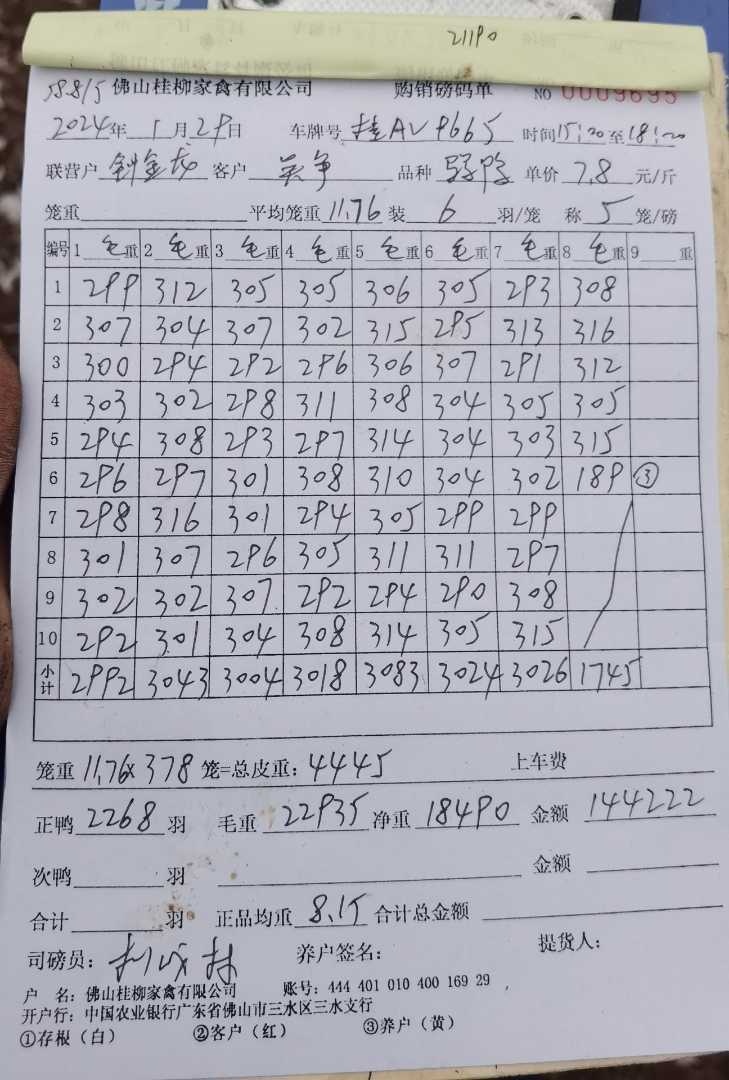 21190
58.8/5 佛山桂柳家禽有限公司 购销磅码单 NO 0009695
2024年 1月29日 车牌号 桂AV9665 时间15:20至18:20
联营户 客户 吴争 品种 单价 7.8 元/斤
笼重 平均笼重 11.76 装 6 羽/笼 称 5 笼/磅
编号 1 毛重 2 毛重 3 毛重 4 毛重 5 毛重 6 毛重 7 毛重 8 毛重 9 重
1 299 312 305 305 306 305 293 308
2 307 304 307 302 315 295 313 316
3 300 294 292 296 306 307 291 312
4 303 302 298 311 308 304 305 305
5 294 308 293 297 314 304 303 315
6 296 297 301 308 310 304 302 189 ③
7 298 316 301 294 305 299 299
8 301 307 296 305 311 311 297
9 302 302 307 292 294 290 308
10 292 301 304 308 314 305 315
小计 2992 3043 3004 3018 3083 3024 3026 1745
笼重 11.76×378 笼=总皮重: 4445 上车费
正鸭 2268 羽 毛重 22935 净重 18490 金额 144222
次鸭 羽 金额
合计 羽 正品均重 8.15 合计总金额
司磅员: 养户签名: 提货人:
户 名: 佛山桂柳家禽有限公司 账号: 444 401 010 400 169 29
开户行: 中国农业银行广东省佛山市三水区三水支行
①存根（白） ②客户（红） ③养户（黄）